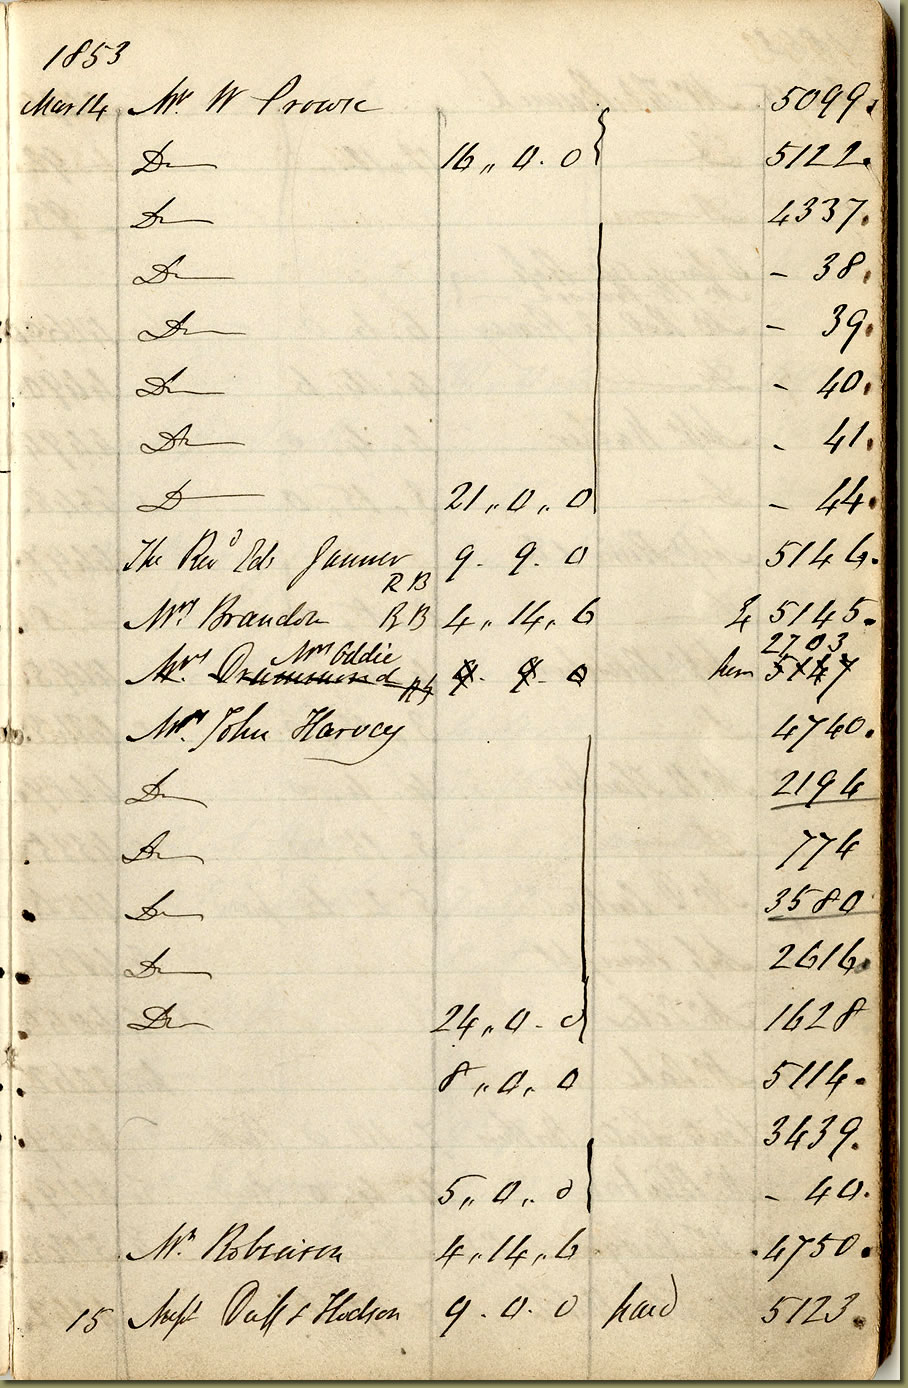 1853
Mar 14 Mr. W Prowse 5099.
Do 16 ,, 0 . 0 5122.
Do 4337.
Do - 38.
Do - 39.
Do - 40.
Do - 41.
Do 21 ,, 0 ,, 0 - 44.
The Revd Ed Jenner 9 . 9 . 0 5146.
RB
Mrs Brandon RB 4 ,, 14 ,, 6 5145.
Mrs Oddie 2703
Mrs Drummond 9 . 9 . 0 5147
Mr. John Harvey 4740.
Do 2194
Do 774
Do 3580
Do 2616.
Do 24 ,, 0 . 0 1628
8 ,, 0 ,, 0 5114.
3439.
5 ,, 0 ,, 0 - 40.
Mr. Robinson 4 ,, 14 ,, 6 4750.
15 Duff & Hodson 9 . 0 . 0 paid 5123.